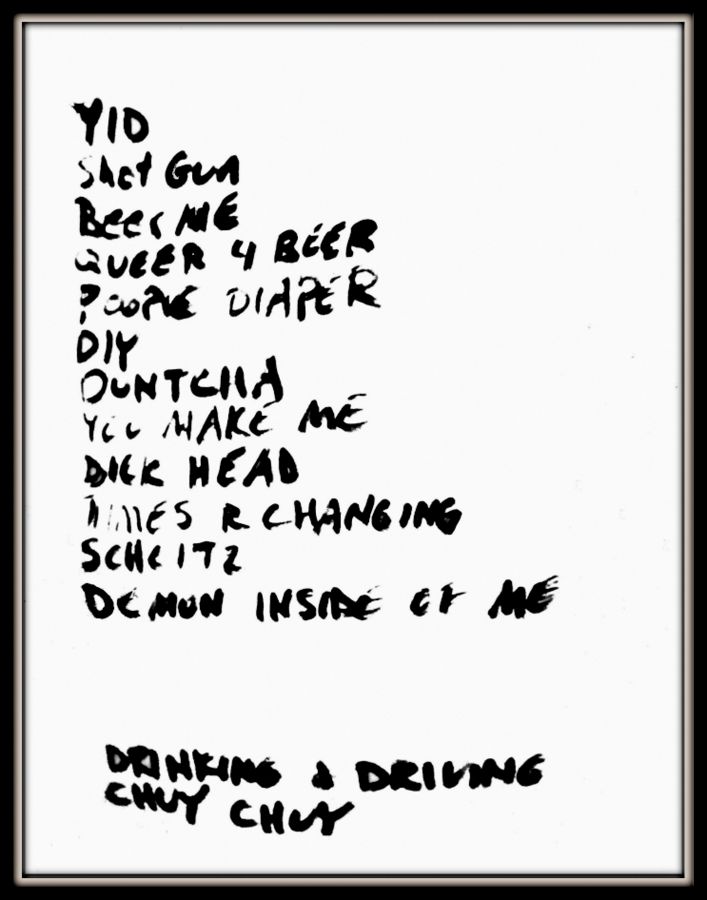 YID
Shot Gun
Beer ME
QUEER 4 BEER
POOPIE DIAPER
DIY
DUNTCHA
YOU MAKE ME
DICK HEAD
TIMES R CHANGING
SCHLITZ
DEMON INSIDE OF ME
DRINKING & DRIVING
CHUY CHUY